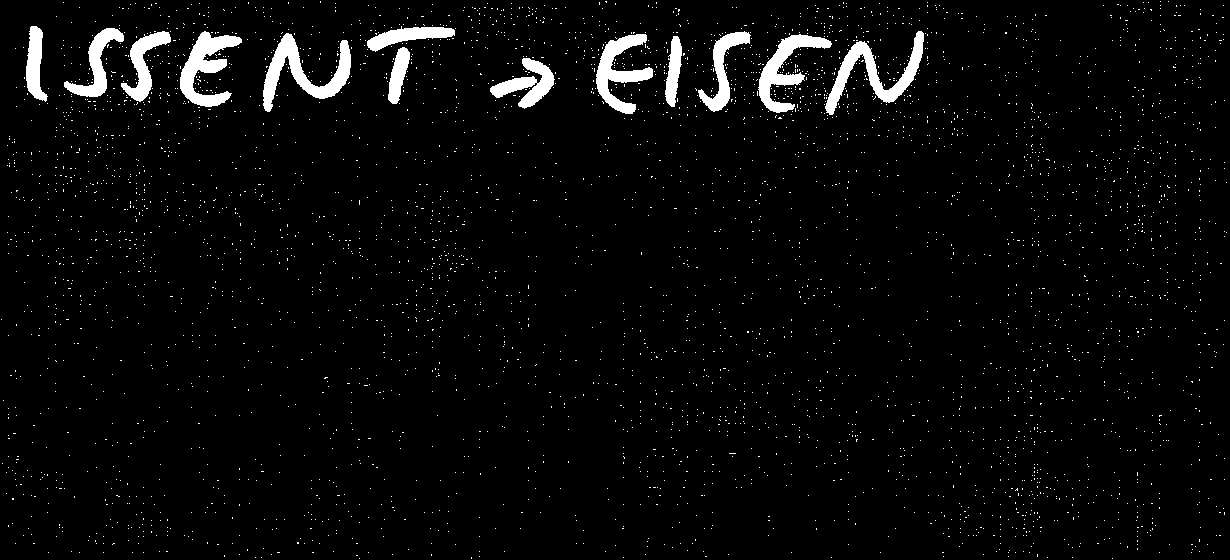 ISSENT → EISEN